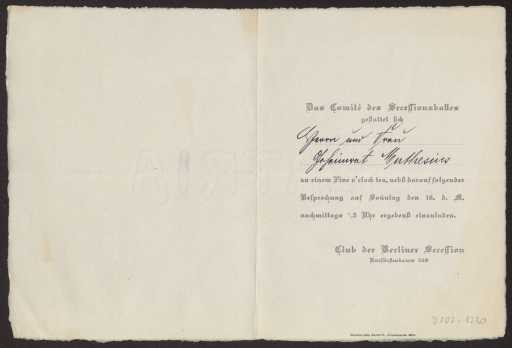 Das Comité des Secessionsballes
gestattet sich
Herrn und Frau
Geheimrat Muthesius
zu einem Five o'clock tea, nebst darauffolgender
Besprechung auf Sonntag den 16. d. M.
nachmittags ½5 Uhr ergebenst einzuladen.
Club der Berliner Secession
Kurfürstendamm 208